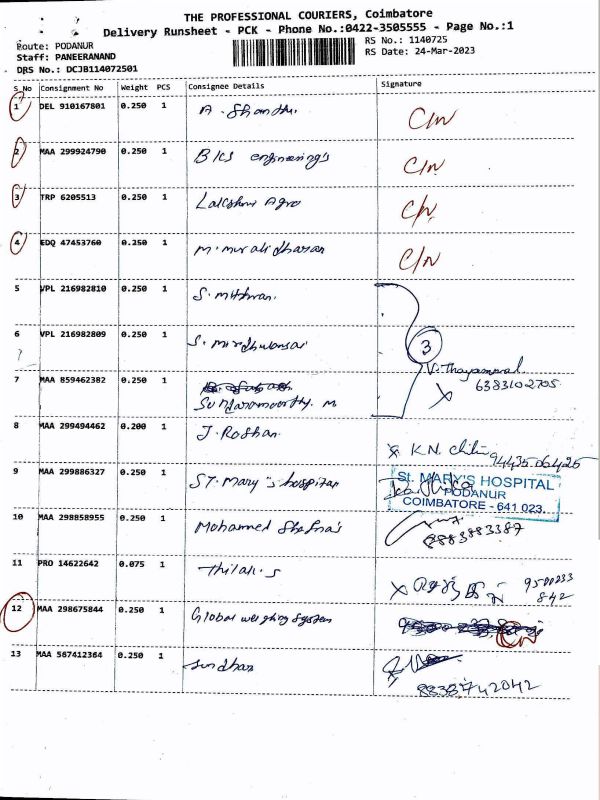 THE PROFESSIONAL COURIERS, Coimbatore
Delivery Runsheet - PCK - Phone No.:0422-3505555 - Page No.:1
Route: PODANUR
Staff: PANEERANAND
DRS No.: DCJB114072501
RS No.: 1140725
RS Date: 24-Mar-2023
S_No Consignment No Weight PCS Consignee Details Signature
1 DEL 910167801 0.250 1 A. Shanthi C/N
2 MAA 299924790 0.250 1 BKS engineering's C/N
3 TRP 6205513 0.250 1 Lakshmi Agro C/N
4 EDQ 47453760 0.250 1 M. Muralidharan C/N
5 VPL 216982810 0.250 1 S. Mithran
6 VPL 216982809 0.250 1 3
?
7 MAA 859462382 0.250 1 V. Thayammal
6383102705
Sundaramoorthy. M
8 MAA 299494462 0.200 1 J. Roshan
K.N. 9443506425
9 MAA 299886327 0.250 1 ST. Mary's hospital
St. MARY'S HOSPITAL
PODANUR
COIMBATORE - 641 023.
10 MAA 298858955 0.250 1 Mohamed
8883883387
11 PRO 14622642 0.075 1 Thilak. S
9500233
842
12 MAA 298675844 0.250 1 Global weighing System C/N
13 MAA 567412364 0.250 1